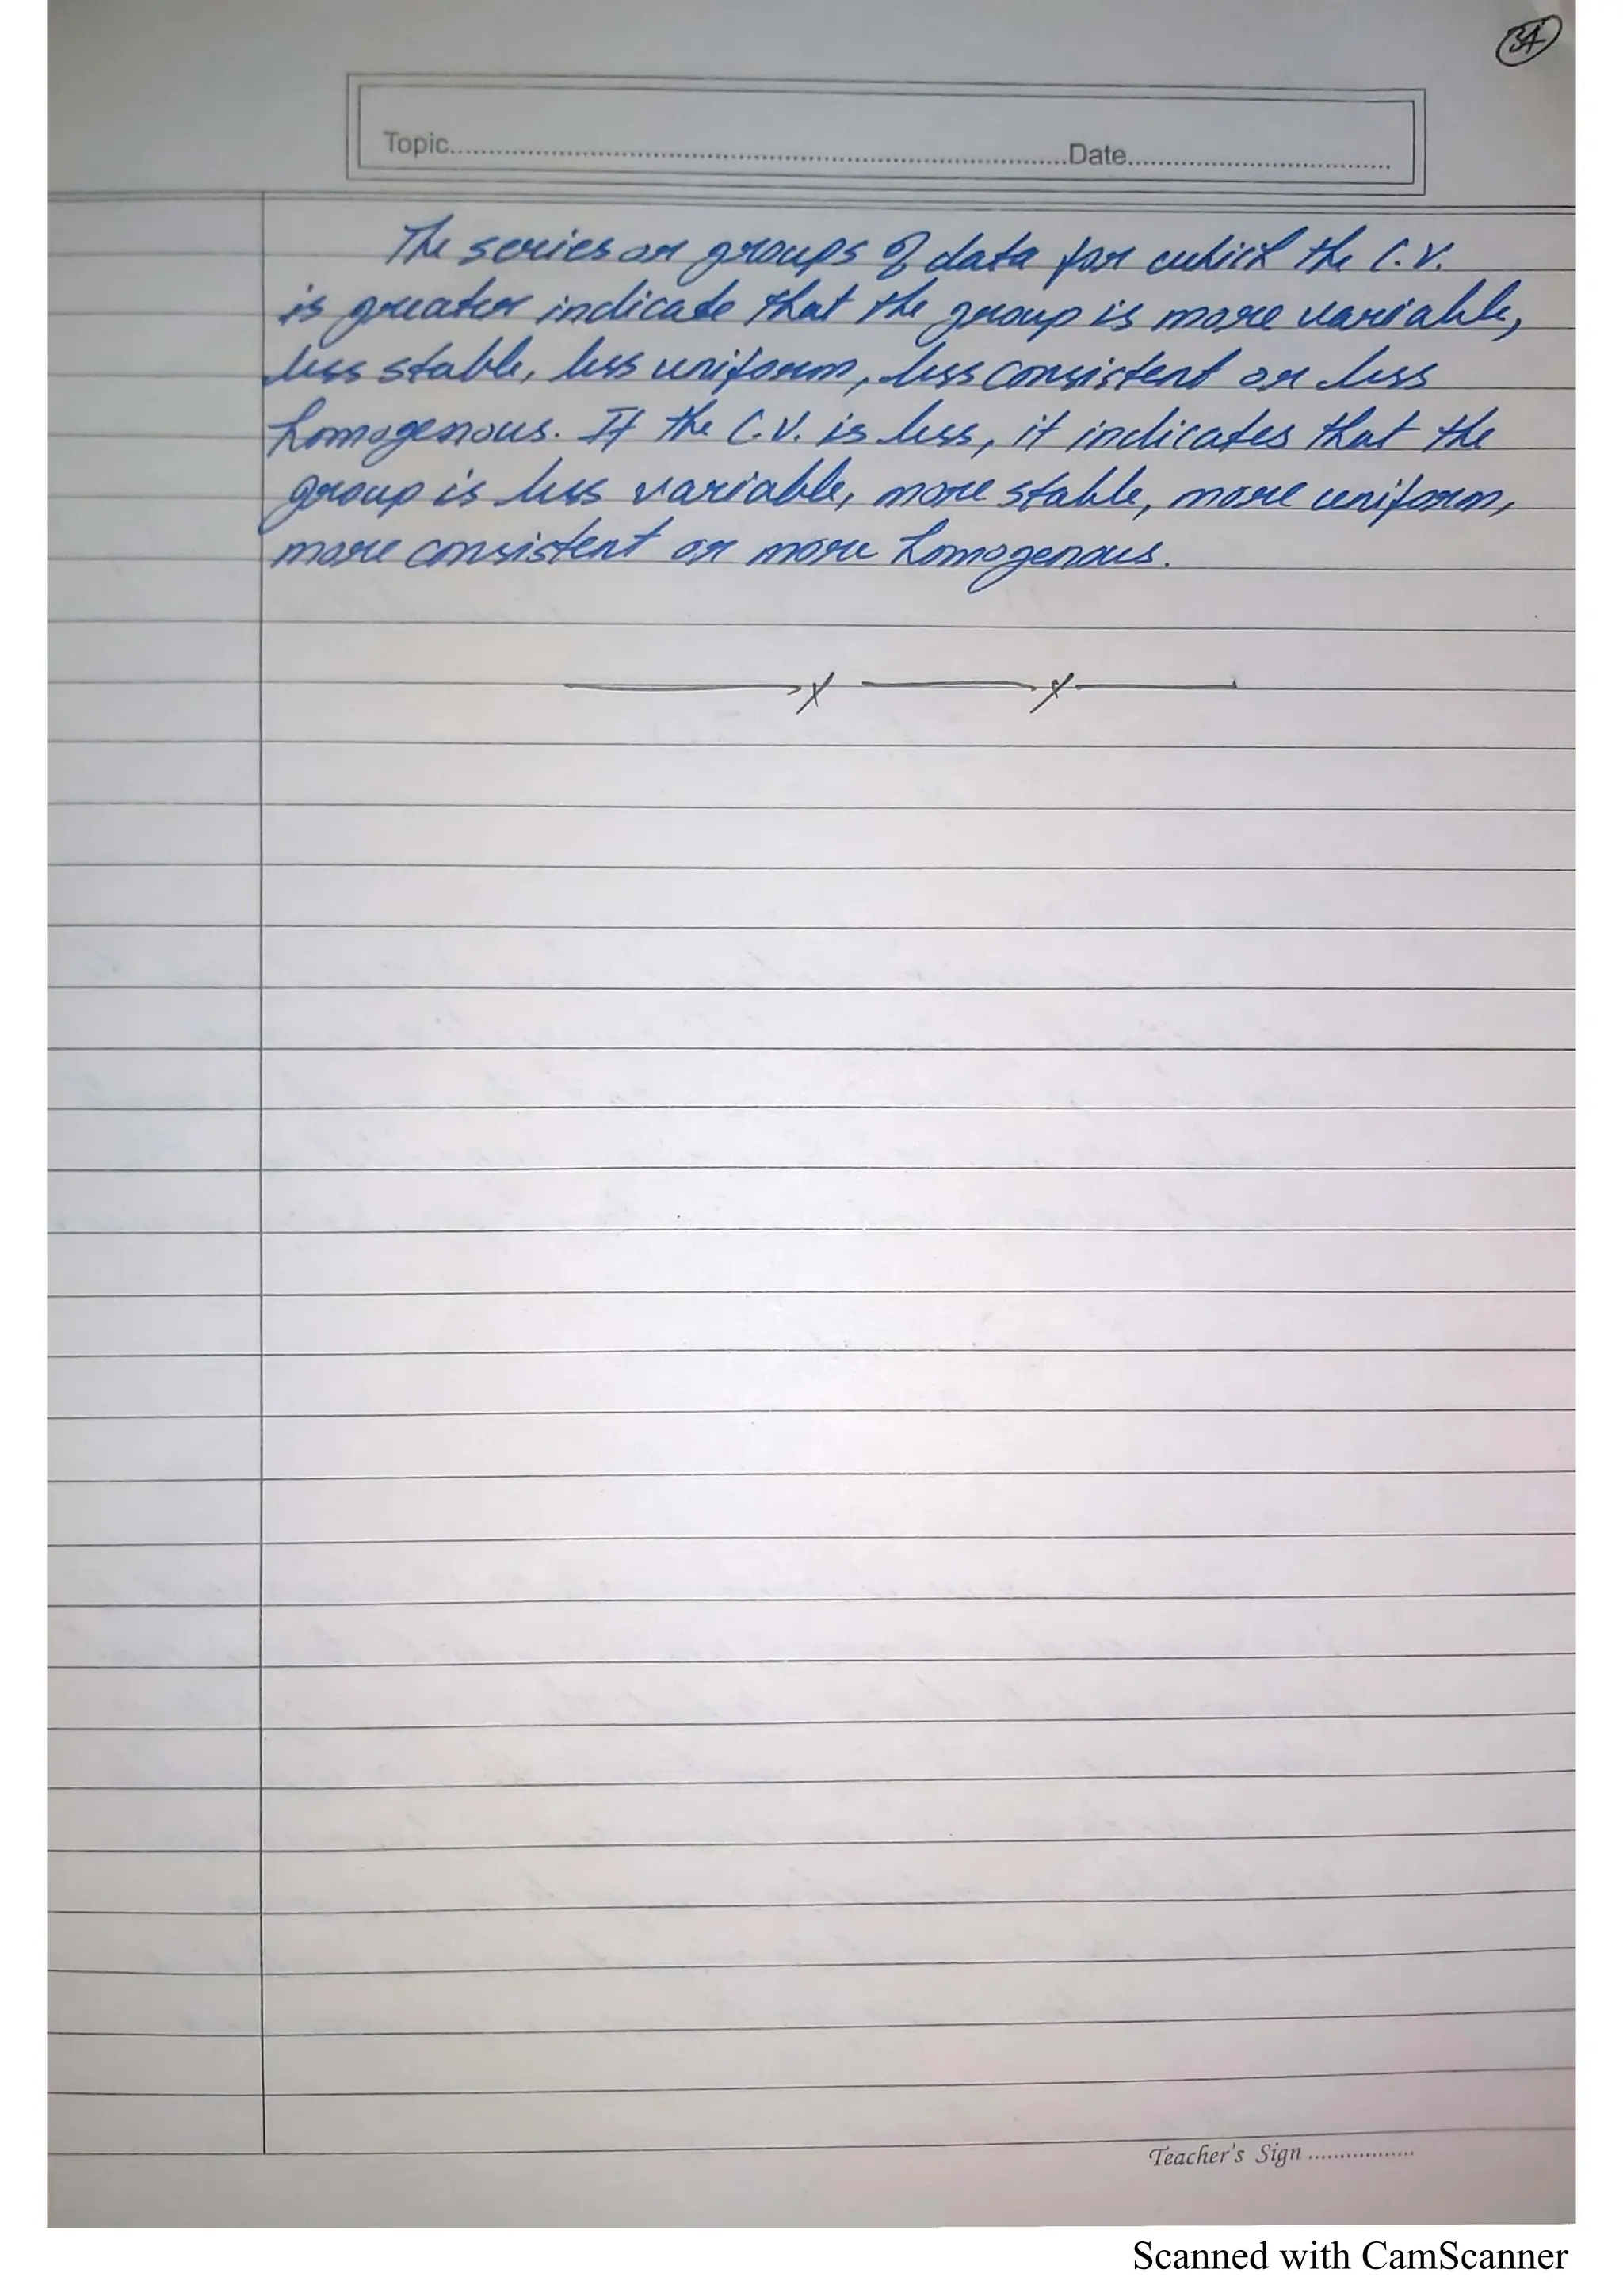 34
Topic.......................................................................................Date.....................................
The series or groups of data for which the C.V.
is greater indicate that the group is more variable,
less stable, less uniform, less consistent or less
homogenous. If the C.V. is less, it indicates that the
group is less variable, more stable, more uniform,
more consistent or more homogenous.
Teacher's Sign ..................
Scanned with CamScanner